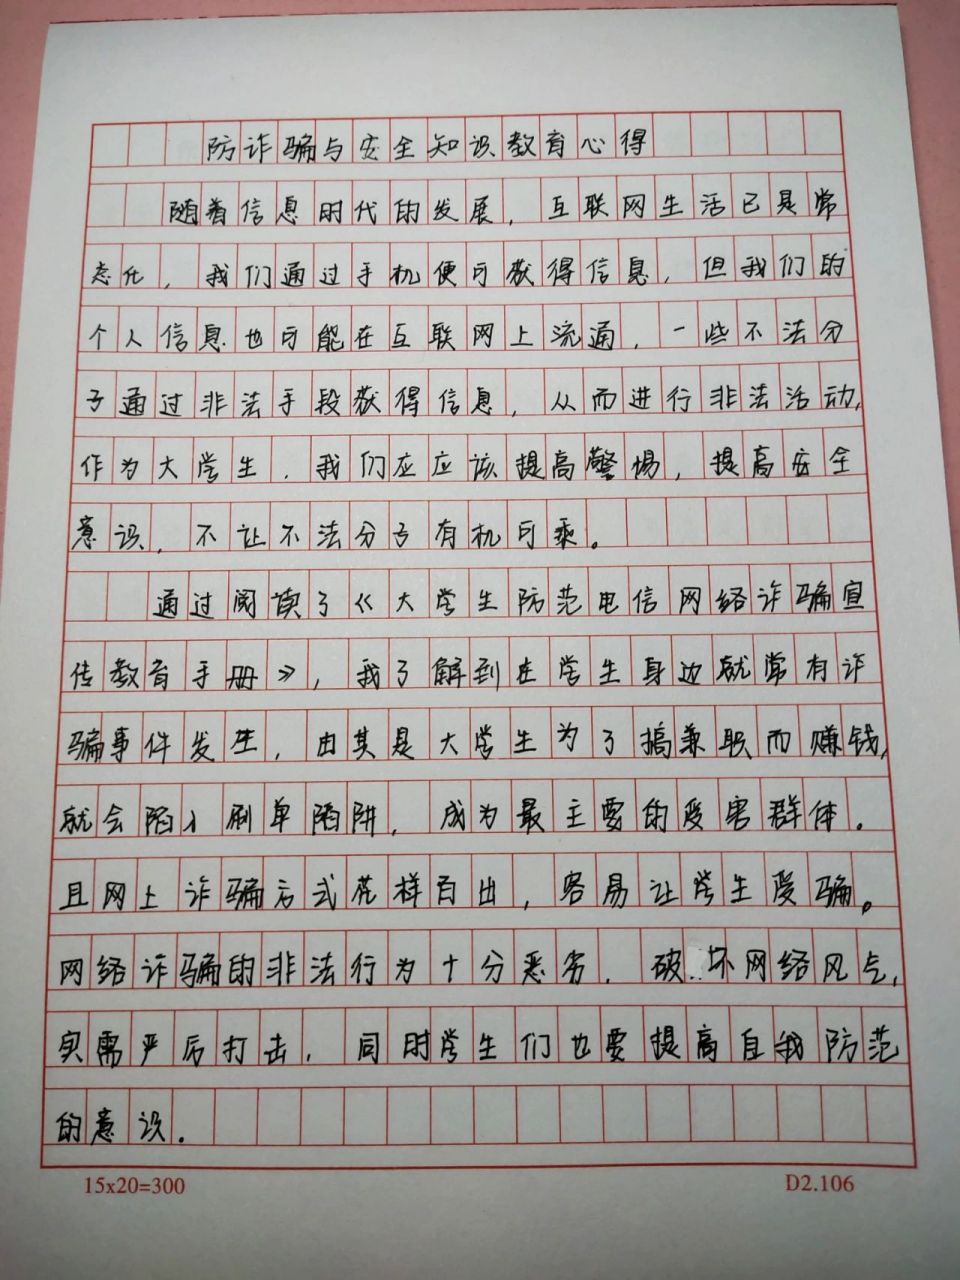 防诈骗与安全知识教育心得
随着信息时代的发展，互联网生活已具常
态化，我们通过手机便可获得信息，但我们的
个人信息也可能在互联网上流通，一些不法分
子通过非法手段获得信息，从而进行非法活动，
作为大学生，我们应应该提高警惕，提高安全
意识，不让不法分子有机可乘。
通过阅读了《大学生防范电信网络诈骗宣
传教育手册》，我了解到在学生身边就常有诈
骗事件发生，由其是大学生为了搞兼职而赚钱，
就会陷入刷单陷阱，成为最主要的受害群体。
且网上诈骗方式花样百出，容易让学生受骗。
网络诈骗的非法行为十分恶劣，破坏网络风气，
实需严厉打击，同时学生们也要提高自我防范
的意识。
15x20=300 D2.106